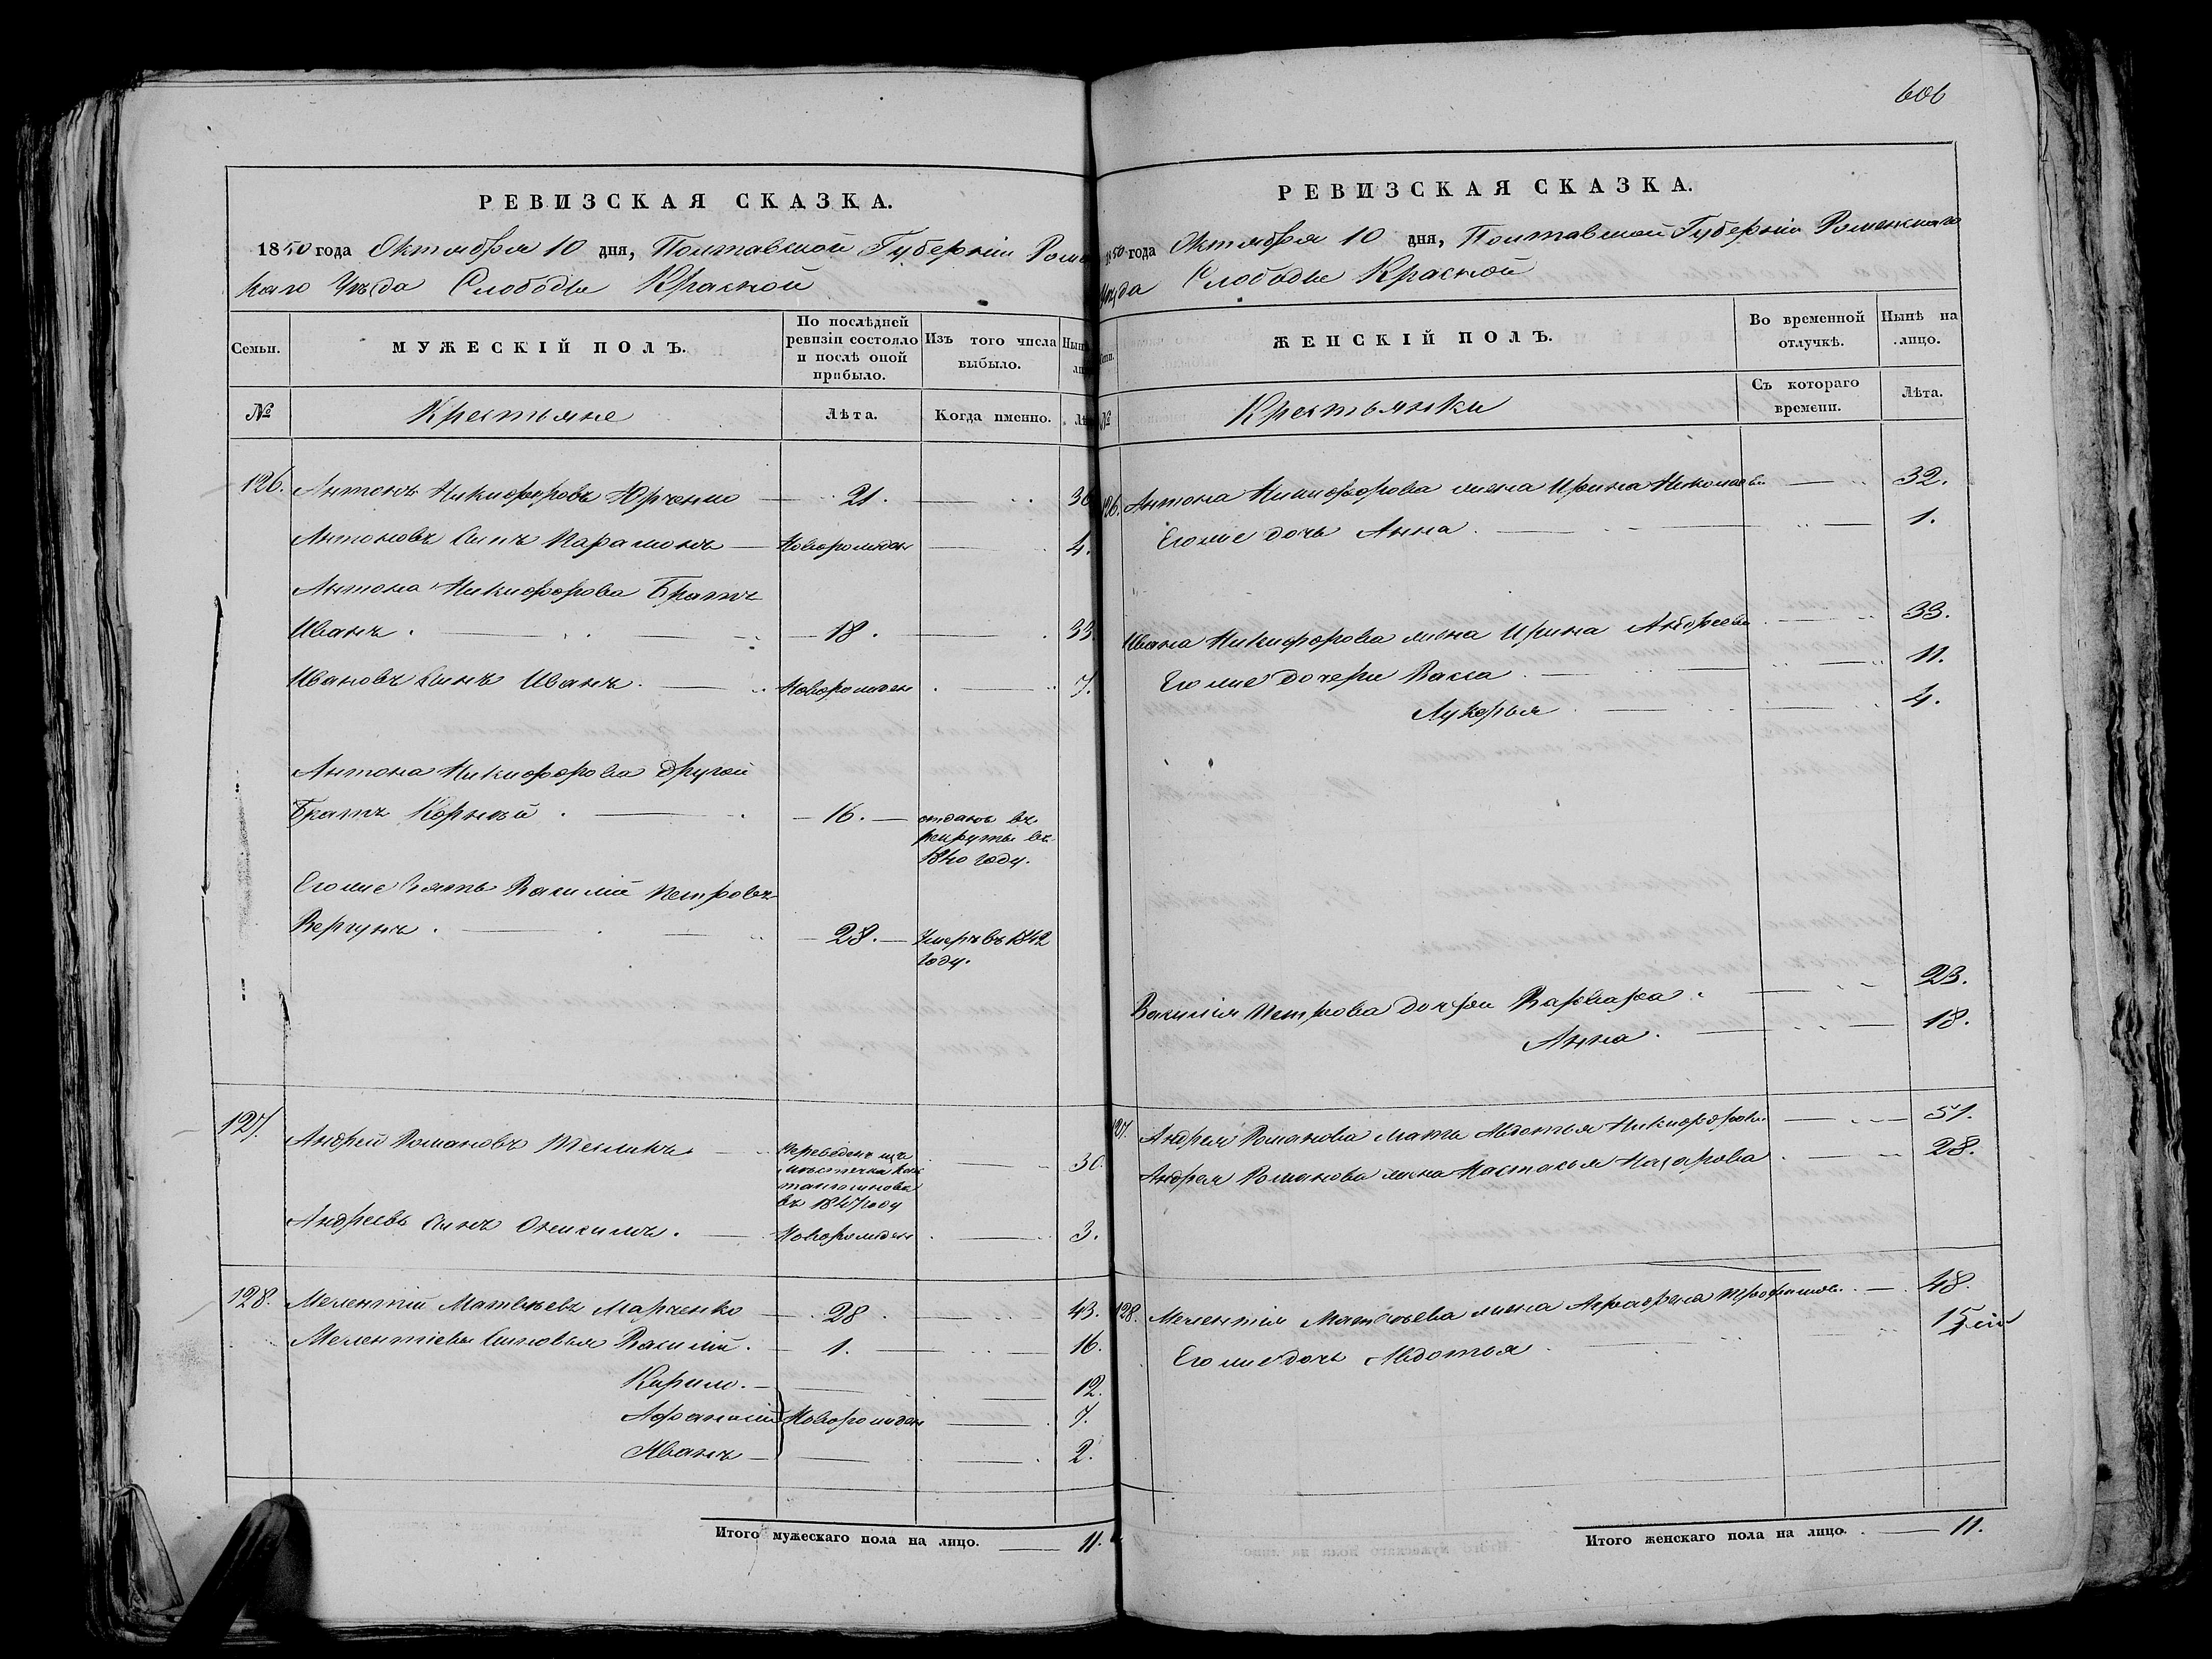 606
РЕВИЗСКАЯ СКАЗКА.
1850 года Октября 10 дня, Полтавской Губерніи Ромен
каго Уѣзда Слободы Красной
Семьи.
МУЖЕСКІЙ ПОЛЪ.
По послѣдней ревизіи состояло и послѣ оной прибыло.
Изъ того числа выбыло.
№
Крестьяне
Лѣта.
Когда именно.
126. Антонъ Никифоровъ Юрченко 21. 36
Антоновъ Сынъ Парамонъ Новорожден 4.
Антона Никифорова Братъ
Иванъ 18. 33.
Ивановъ Сынъ Иванъ Новорожден 7.
Антона Никифорова другой
Братъ Корнѣй 16. отданъ въ
рекруты въ
1840 году.
Егоже Зять Василій Петровъ
Вергунъ 28. Умеръ въ 1842
году.
127. Андрей Романовъ переведенъ изъ 30.
мѣстечка
въ 1847 году
Андреевъ Сынъ Онисимъ Новорожден 3.
128. Мелентій Матвѣевъ Марченко 28 43.
Мелентіевы Сыновья Василій 1. 16.
Кирило 12.
Афанасій Новорожден 7.
Иванъ 2.
Итого мужескаго пола на лицо. 11.
РЕВИЗСКАЯ СКАЗКА.
1850 года Октября 10 дня, Полтавской Губерніи Роменскаго
Уѣзда Слободы Красной
ЖЕНСКІЙ ПОЛЪ.
Во временной отлучкѣ.
Нынѣ на лицо.
№
Крестьянки
Съ котораго времени.
Лѣта.
126. Антона Никифорова жена Ирина 32.
Егоже дочь Анна 1.
Ивана Никифорова жена Ирина Андреева 33.
Егоже дочери Васса 11.
Лукерья 4.
Василія Петрова дочери Варвара 23.
Анна 18.
127. Андрея Романова мать Авдотья Никифорова 51.
Андрея Романова жена Настасья Назарова 28.
128. Мелентія Матвѣева жена Аграфена Трофимова 48.
Егоже дочь Авдотья 15
Итого женскаго пола на лицо. 11.